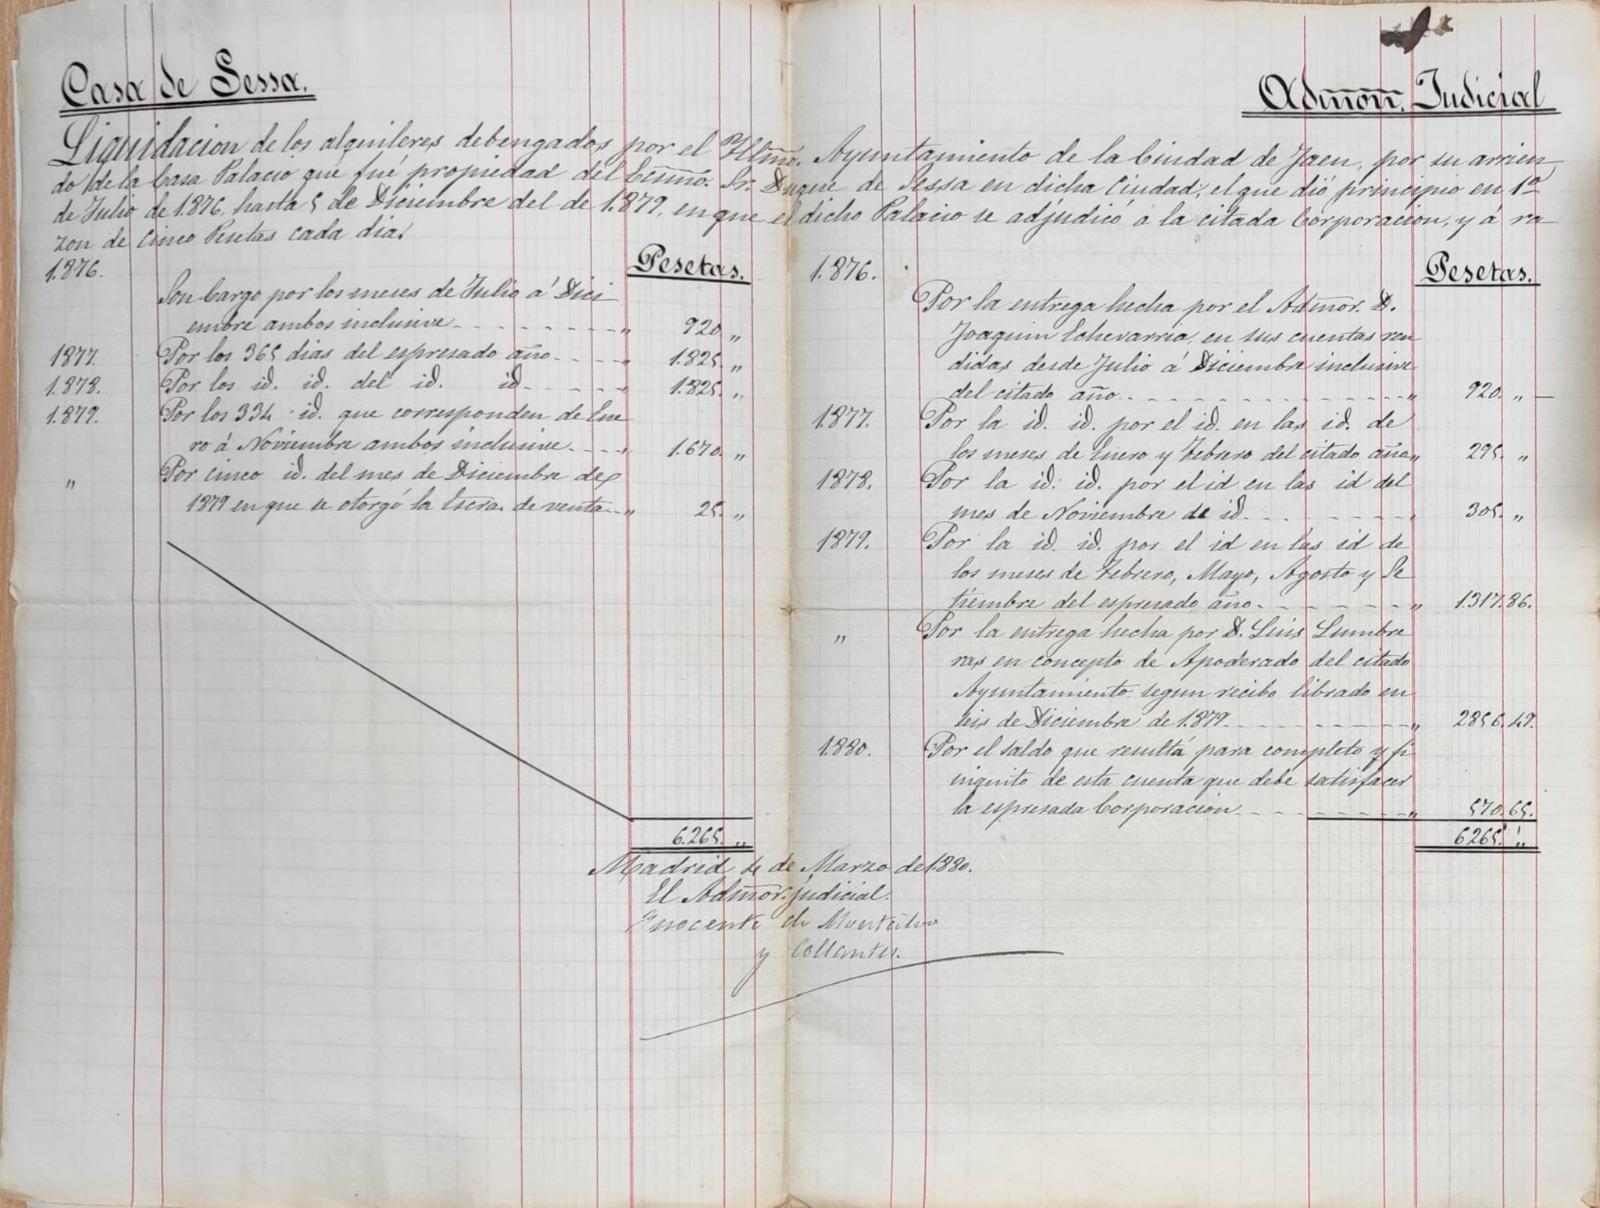 Casa de Sessa.
Admon. Judicial
Liquidacion de los alquileres debengados por el Ylmo. Ayuntamiento de la Ciudad de Jaen, por su arrien
do de la Casa Palacio que fué propiedad del Ecsmo. Sr. Duque de Sessa en dicha Ciudad, el que dió principio en 1º
de Julio de 1.876, hasta 5 de Diciembre del de 1.879, en que el dicho Palacio se adjudicó á la citada Corporacion, y á ra
zon de cinco Pesetas cada dia.
Pesetas.
1.876.
Son Cargo por los meses de Julio á Dici
embre ambos inclusive 920 „
1877. Por los 365 dias del espresado año 1.825 „
1.878. Por los id. id. del id. id 1.825 „
1.879. Por los 334 id. que corresponden de Ene
ro á Noviembre ambos inclusive 1.670 „
„ Por cinco id. del mes de Diciembre de
1879 en que se otorgó la Escra. de venta 25 „
6.265 „
Pesetas.
1.876. Por la entrega hecha por el Admor. D.
Joaquin Echevarria, en sus cuentas ren
didas desde Julio á Diciembre inclusive
del citado año 920 „
1.877. Por la id. id. por el id. en las id. de
los meses de Enero y Febrero del citado año 295 „
1.878. Por la id. id. por el id en las id del
mes de Noviembre de id 305 „
1.879. Por la id. id. por el id en las id de
los meses de Febrero, Mayo, Agosto y Se
tiembre del espresado año 1.317.86.
„ Por la entrega hecha por D. Luis Lumbre
ras en concepto de Apoderado del citado
Ayuntamiento segun recibo librado en
seis de Diciembre de 1.879 2856.49.
1.880. Por el saldo que resulta para completo y fi
niquito de esta cuenta que debe satisfacer
la espresada Corporacion 570.65.
6265 „
Madrid 4 de Marzo de 1.880.
El Admor. judicial.
Inocente de Montalvo
y Collantes.